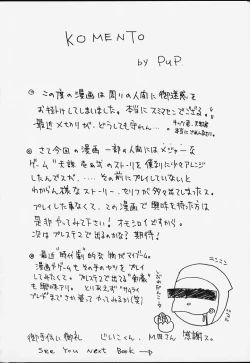 KOMENTO
by PUP.
◎ この度の漫画は周りの人間に御迷惑を
お掛けしてしまいました。本当にスミマセンでござる。
最近〆切りが、どうしても守れん…。
本当に
◎ さて今回の漫画 一部の人間にはメジャーな
ゲーム のストーリを僕なりに少々アレンジ
したんでスが、… その前にプレイしていないと
わからん様なストーリー、セリフが多々出てしまったス。
プレイした事なくて、この漫画で興味を持った方は
是非やってみて下さい! オモシロイですから。
次はプレステで出るのかな? 期待!
◎ 最近"時代劇"的な物がマイブーム。
漫画やゲームもその手のやつをプレイ
してみたくて。プレステ2で出る
も興味アリ。とりあえず"サムライ
までさか登ってやってみるか(笑)
ニンニン
御手伝い御礼 じいこくん、M田さん 感謝ス。
See You Next Book →